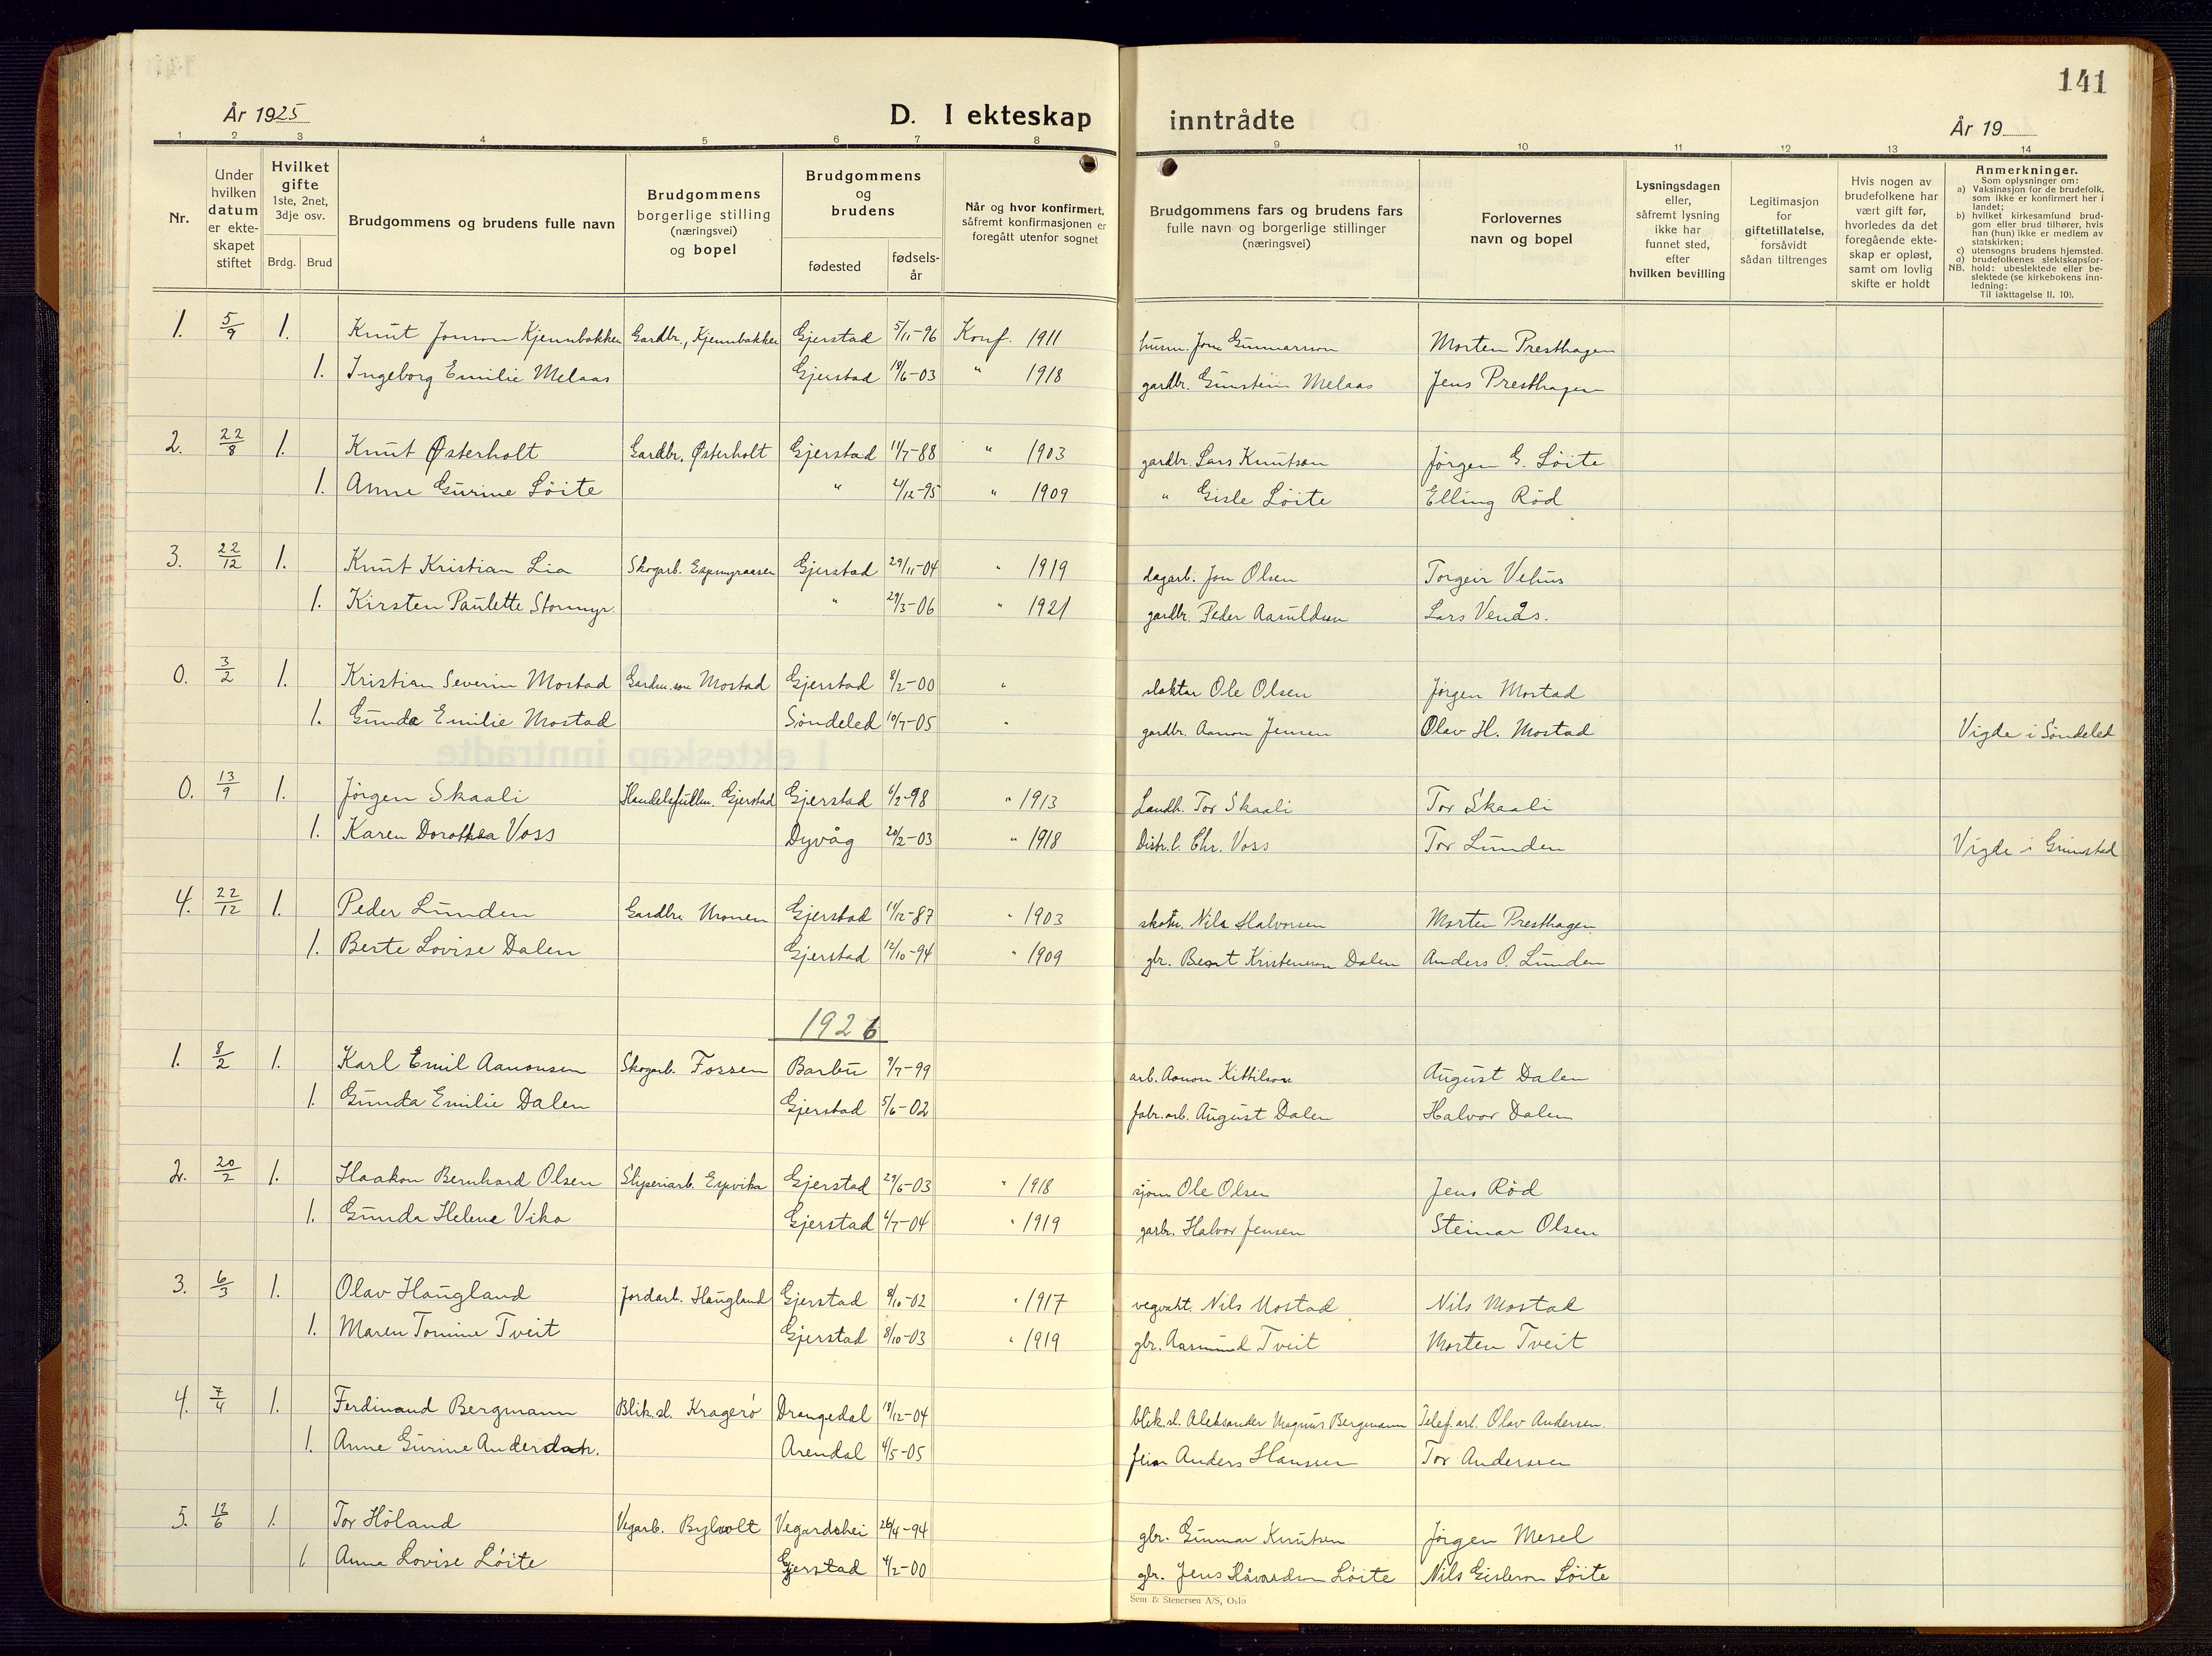 141
År 1925
D. I ekteskap inntrådte
År 19
1 2 3 4 5 6 7 8 9 10 11 12 13 14
Nr.
Under hvilken datum er ekteskapet stiftet
Hvilket gifte 1ste, 2net, 3dje osv.
Brdg. Brud
Brudgommens og brudens fulle navn
Brudgommens borgerlige stilling (næringsvei) og bopel
Brudgommens og brudens
fødested
fødselsår
Når og hvor konfirmert, såfremt konfirmasjonen er foregått utenfor sognet
Brudgommens fars og brudens fars fulle navn og borgerlige stillinger (næringsvei)
Forlovernes navn og bopel
Lysningsdagen eller, såfremt lysning ikke har funnet sted, efter hvilken bevilling
Legitimasjon for giftetillatelse, forsåvidt sådan tiltrenges
Hvis nogen av brudefolkene har vært gift før, hvorledes da det foregående ekteskap er opløst, samt om lovlig skifte er holdt
Anmerkninger.
Som oplysninger om:
a) Vaksinasjon for de brudefolk, som ikke er konfirmert her i landet;
b) hvilket kirkesamfund brudgom eller brud tilhører, hvis han (hun) ikke er medlem av statskirken;
c) utensogns brudens hjemsted.
d) brudefolkenes slektskapsforhold: ubeslektede eller beslektede (se kirkebokens innledning:
NB.
Til iakttagelse II. 10).
1. 5/9 1. Knut Jonson Kjennbakken Gardbr., Kjennbakken Gjerstad 5/11-96 Konf. 1911 husm. Jon Gunnarson Morten Presthagen
1. Ingeborg Emilie Melaas Gjerstad 18/6-03 " 1918 gardbr. Gunstein Melaas Jens Presthagen
2. 22/8 1. Knut Østerholt Gardbr. Østerholt Gjerstad 11/7-88 " 1903 gardbr. Lars Knutson Jørgen G. Løite
1. Anne Gurine Løite " 21/12-95 " 1909 " Gisle Løite Elling Rød
3. 22/12 1. Knut Kristian Lia Skogarb. Gjerstad 29/11-04 " 1919 dagarb. Jon Olsen Torgeir Vehus
1. Kirsten Paulette Stormyr. " 29/3-06 " 1921 gardbr. Peder Aasuldsen Lars Venås.
0. 3/2 1. Kristian Severin Mostad Gardm.søn Mostad Gjerstad 8/2-00 " slaktar Ole Olsen Jørgen Mostad
1. Gunda Emilie Mostad Søndeled 10/7-05 " gardbr. Aanon Jensen Olav H. Mostad Vigde i Søndeled
0. 13/9 1. Jørgen Skaali Handelsfullm. Gjerstad Gjerstad 6/2-98 " 1913 Landh. Tor Skaali Tor Skaali
1. Karen Dorothea Voss Dyvåg 20/2-03 " 1918 Distr.l. Chr. Voss Tor Lunden Vigde i Grimstad
4. 22/12 1. Peder Lunden Gardbr. Gjerstad 11/12-87 " 1903 Nils Halvorsen Morten Presthagen
1. Berte Lovise Dalen Gjerstad 12/10-94 " 1909 gbr. Bent Kristenson Dalen Anders O. Lunden
1926
1. 8/2 1. Karl Emil Aanonsen Skogarb. Fossen Barbu 9/7-99 arb. Aanon Kittilson August Dalen
1. Gunda Emilie Dalen Gjerstad 5/6-02 fabr.arb. August Dalen Halvor Dalen
2. 20/2 1. Haakon Bernhard Olsen Sliperiarb. Gjerstad 29/6-03 " 1918 sjøm Ole Olsen Jens Rød
1. Gunda Helene Vika Gjerstad 6/7-04 " 1919 garbr. Halvor Jensen Steinar Olsen
3. 6/3 1. Olav Haugland Jordarb. Haugland Gjerstad 8/10-02 " 1917 vegvakt. Nils Mostad Nils Mostad
1. Maren Tomine Tveit Gjerstad 8/10-03 " 1919 gbr. Aasmund Tveit Morten Tveit
4. 7/4 1. Ferdinand Bergmann Blik.sl. Kragerø Drangedal 18/12-04 blik.sl. Aleksander Magnus Bergmann Telef.arb. Olav Andersen.
1. Anne Gurine Andersdatr. Arendal 4/5-05 feiar Anders Hanssen Tor Andersen
5. 12/6 1. Tor Høland Vegarb. Byholt Vegardshei 26/4-94 gbr. Gunnar Knutsen Jørgen Mesel
1 Anna Lovise Løite Gjerstad 4/2-00 gbr. Jens Håvardson Løite Nils Gisleson Løite
Sem & Stenersen A/S, Oslo